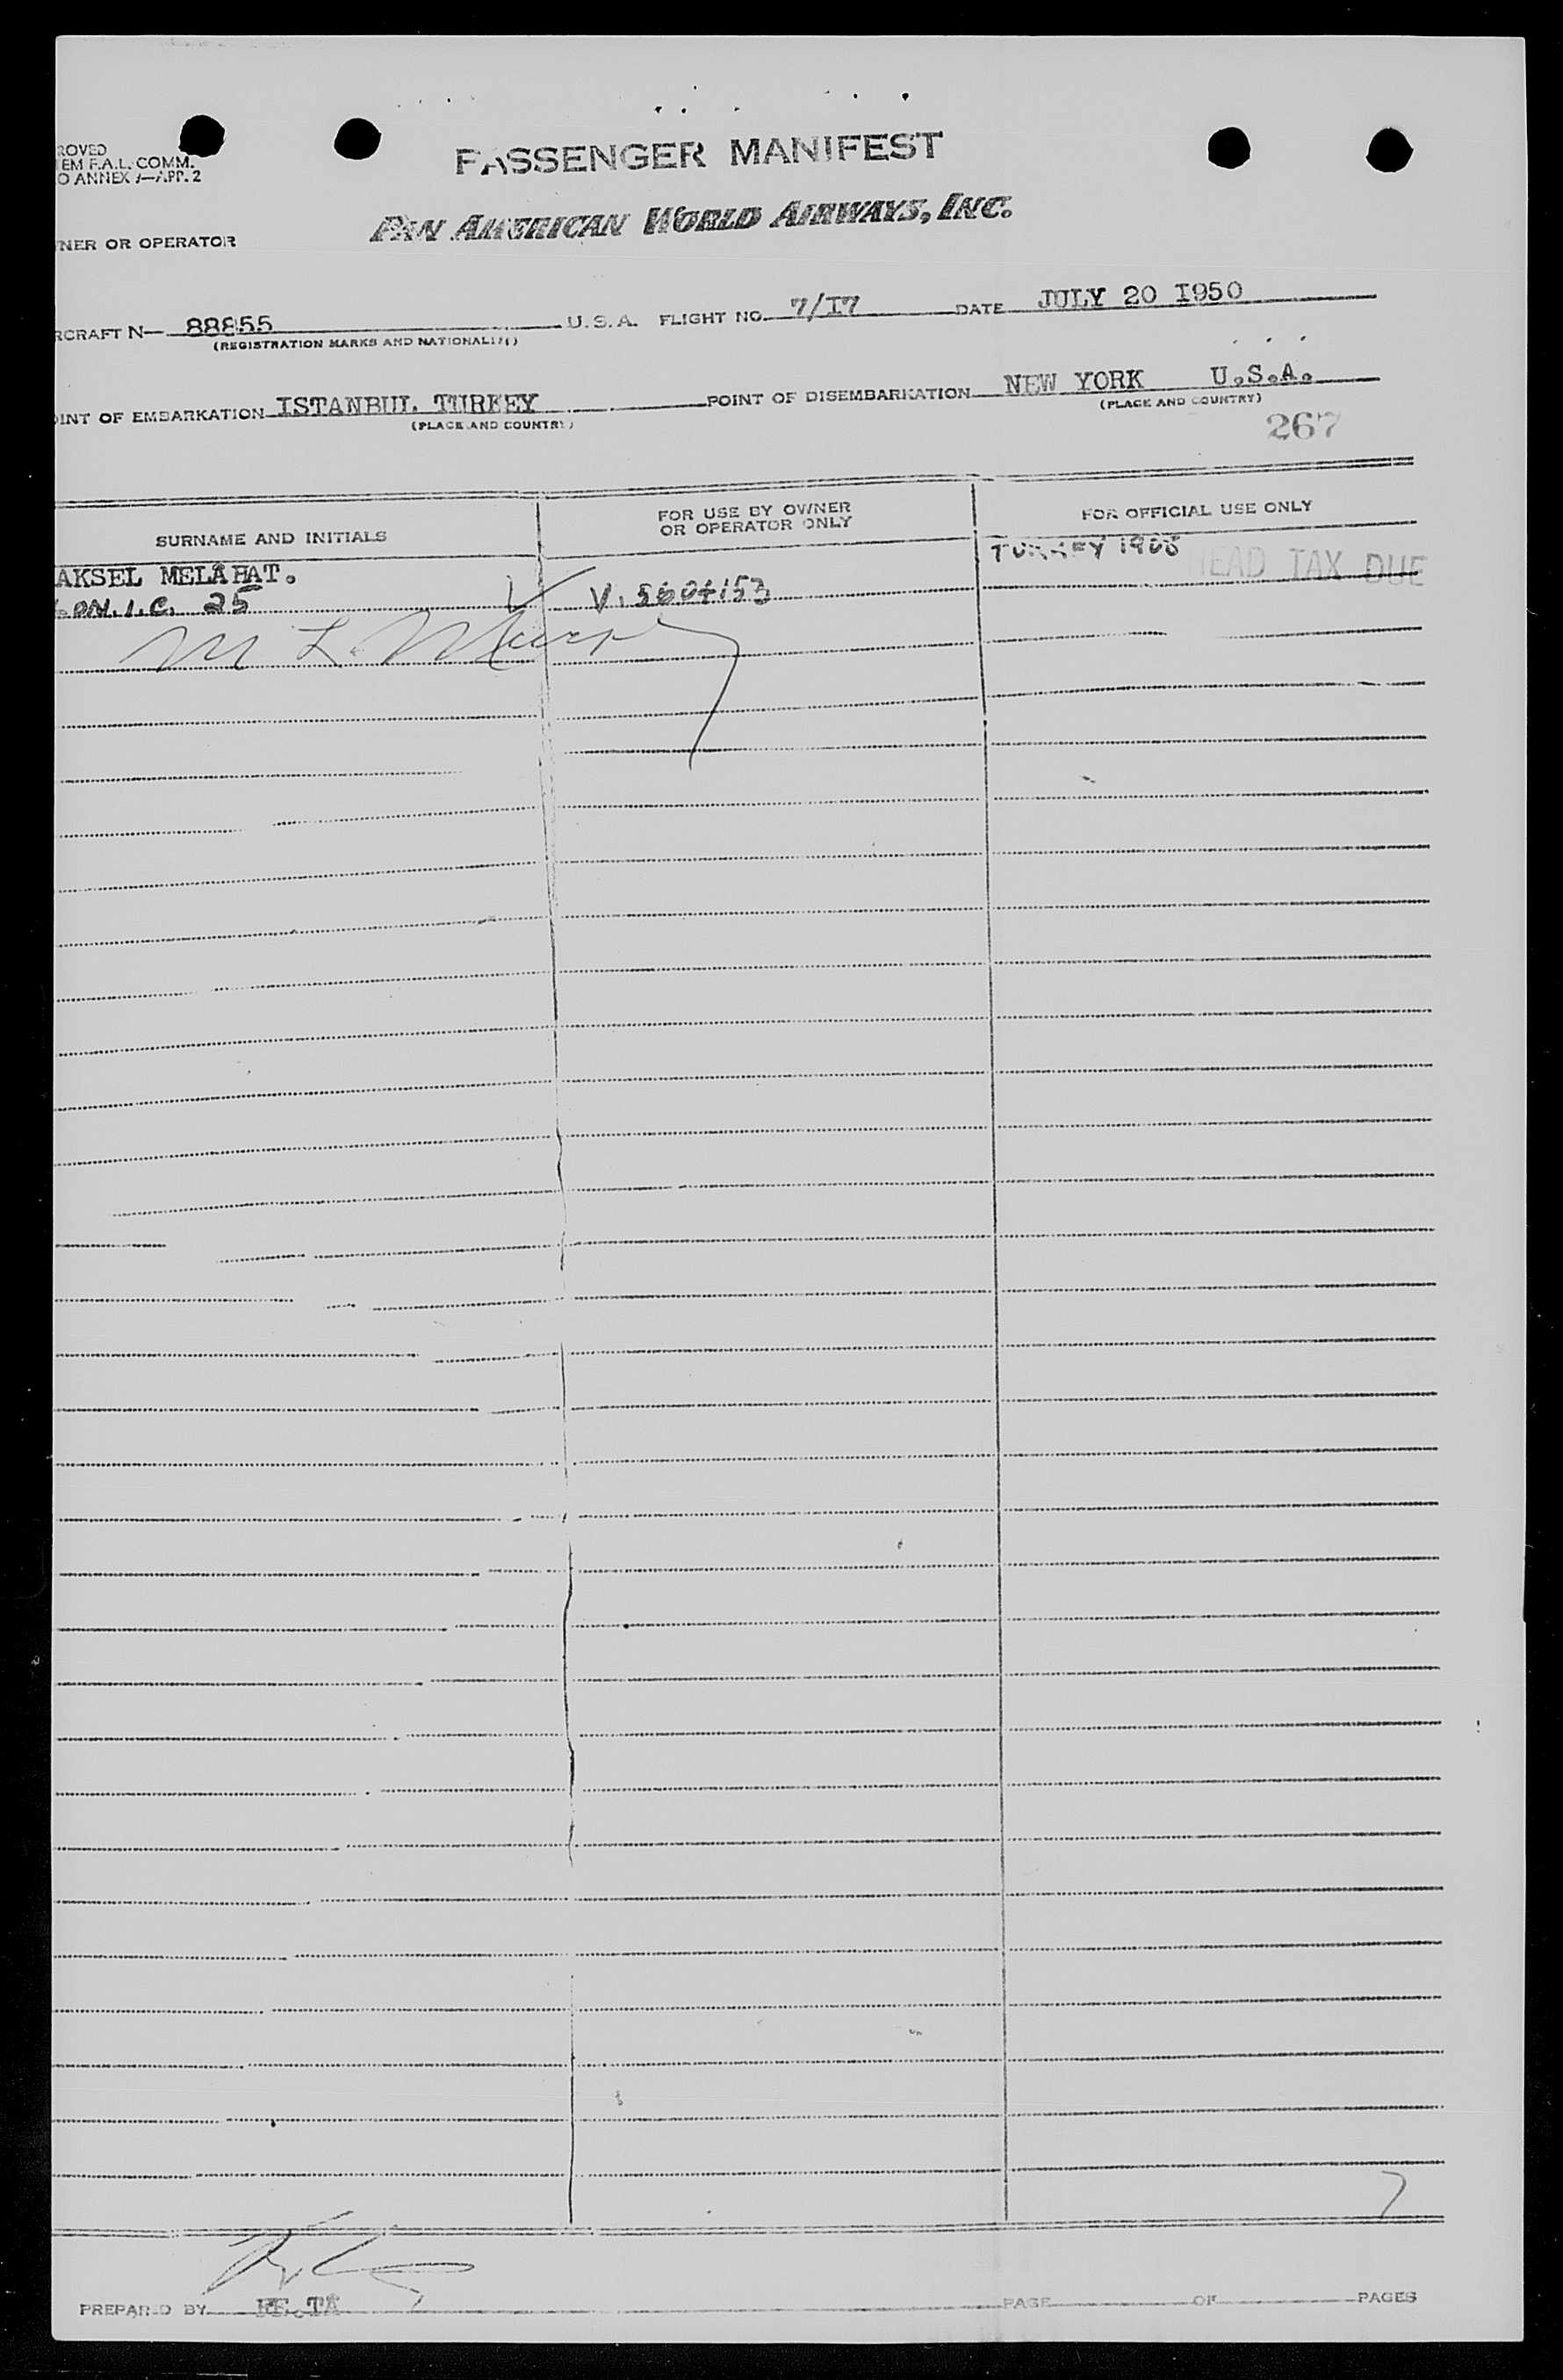 ROVED
EM F.A.L. COMM.
O ANNEX 9—APP. 2
PASSENGER MANIFEST
PAN AMERICAN WORLD AIRWAYS, INC.
NER OR OPERATOR
RCRAFT N— 88855 U.S.A. FLIGHT NO. 7/I7 DATE JULY 20 I950
(REGISTRATION MARKS AND NATIONALITY)
INT OF EMBARKATION ISTANBUL TURKEY POINT OF DISEMBARKATION NEW YORK U.S.A.
(PLACE AND COUNTRY) (PLACE AND COUNTRY)
267
SURNAME AND INITIALS FOR USE BY OWNER OR OPERATOR ONLY FOR OFFICIAL USE ONLY
AKSEL MELÂHAT. TURKEY HEAD TAX DUE
I.C. 25 V. 5604153
M L
PREPARED BY PAGE OF PAGES